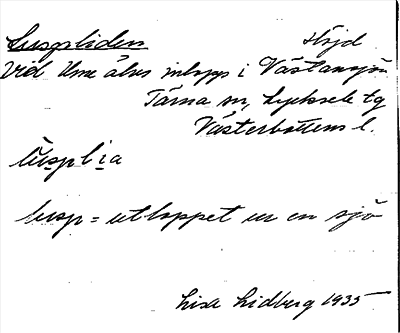 Luspliden Höjd
Vid Ume älvs inlopp i Västansjön
Tärna sn, Lycksele tg
Västerbottens l.
lùspli̱a
lusp = utloppet ur en sjö
Lisa Lidberg 1935